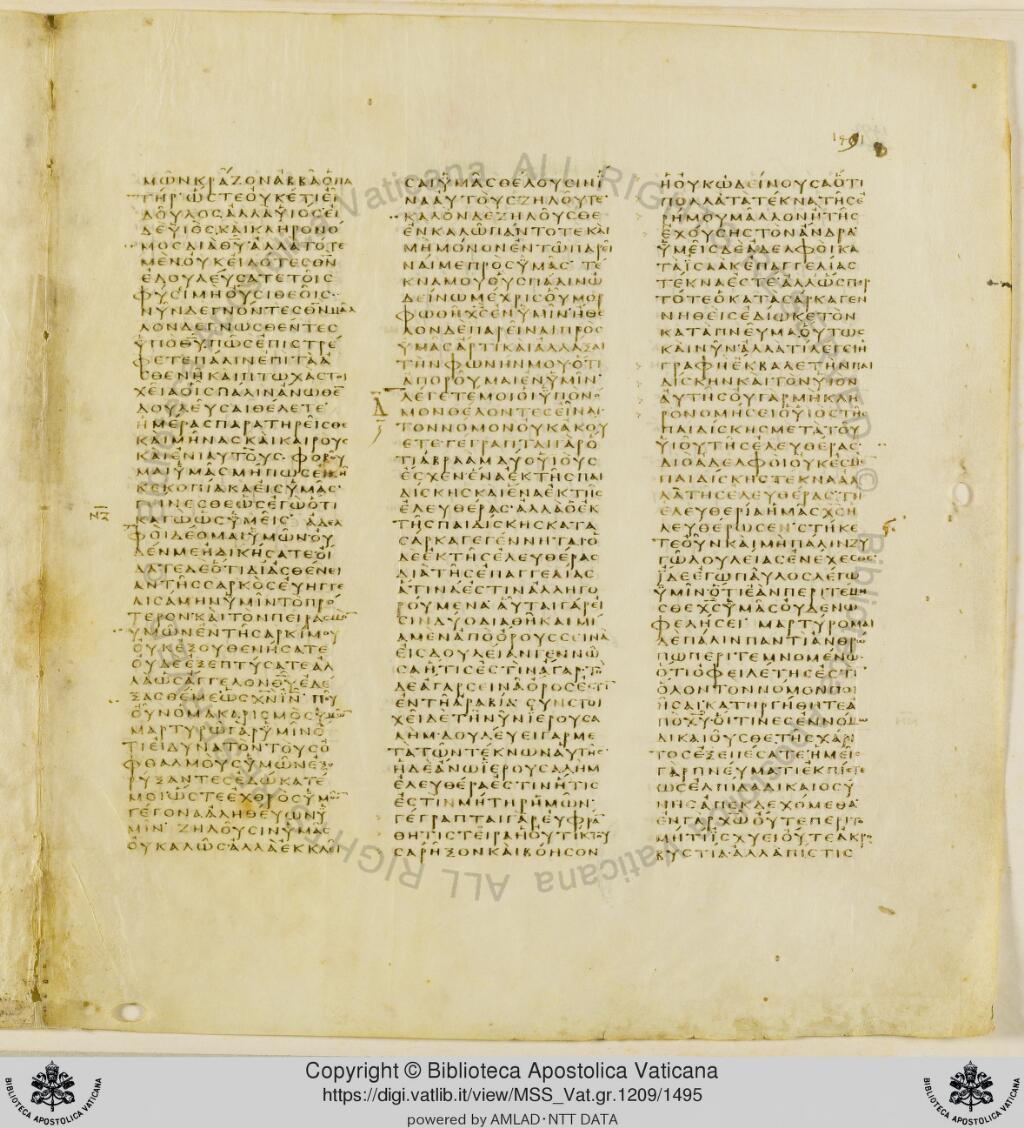 ΜΩΝΚΡΑΖΟΝΑΒΒΑΟΠΑ
ΤΗΡ ΩΣΤΕΟΥΚΕΤΙΕΙ
ΔΟΥΛΟΣΑΛΛΑΥΙΟΣΕΙ
ΔΕΥΙΟΣΚΑΙΚΛΗΡΟΝΟ
ΜΟΣΔΙΑΘΥ ΑΛΛΑΤΟΤΕ
ΜΕΝΟΥΚΕΙΔΟΤΕΣΘΝ
ΕΔΟΥΛΕΥΣΑΤΕΤΟΙΣ
ΦΥΣΙΜΗΟΥΣΙΘΕΟΙΣ
ΝΥΝΔΕΓΝΟΝΤΕΣΘΝΜΑΛ
ΛΟΝΔΕΓΝΩΣΘΕΝΤΕΣ
ΥΠΟΘΥΠΩΣΕΠΙΣΤΡΕ
ΦΕΤΕΠΑΛΙΝΕΠΙΤΑΑ
ΣΘΕΝΗΚΑΙΠΤΩΧΑΣΤΟΙ
ΧΕΙΑΟΙΣΠΑΛΙΝΑΝΩΘΕ
ΔΟΥΛΕΥΣΑΙΘΕΛΕΤΕ
ΗΜΕΡΑΣΠΑΡΑΤΗΡΕΙΣΘΕ
ΚΑΙΜΗΝΑΣΚΑΙΚΑΙΡΟΥΣ
ΚΑΙΕΝΙΑΥΤΟΥΣ ΦΟΒΟΥ
ΜΑΙΥΜΑΣΜΗΠΩΣΕΙΚΗ
ΚΕΚΟΠΙΑΚΑΕΙΣΥΜΑΣ
ΓΙΝΕΣΘΕΩΣΕΓΩΟΤΙ
ΚΑΓΩΩΣΥΜΕΙΣ ΑΔΕΛ
ΦΟΙΔΕΟΜΑΙΥΜΩΝΟΥ
ΔΕΝΜΕΗΔΙΚΗΣΑΤΕΟΙ
ΔΑΤΕΔΕΟΤΙΔΙΑΣΘΕΝΕΙ
ΑΝΤΗΣΣΑΡΚΟΣΕΥΗΓΓΕ
ΛΙΣΑΜΗΝΥΜΙΝΤΟΠΡΟ
ΤΕΡΟΝ ΚΑΙΤΟΝΠΕΙΡΑΣΜΟ
ΥΜΩΝΕΝΤΗΣΑΡΚΙΜΟΥ
ΟΥΚΕΞΟΥΘΕΝΗΣΑΤΕ
ΟΥΔΕΕΞΕΠΤΥΣΑΤΕΑΛ
ΛΑΩΣΑΓΓΕΛΟΝΘΥΕΔΕ
ΞΑΣΘΕΜΕΩΣΧΝΙΝ ΠΟΥ
ΟΥΝΟΜΑΚΑΡΙΣΜΟΣΥΜΩ
ΜΑΡΤΥΡΩΓΑΡΥΜΙΝΟ
ΤΙΕΙΔΥΝΑΤΟΝΤΟΥΣΟ
ΦΘΑΛΜΟΥΣΥΜΩΝΕΞΟ
ΡΥΞΑΝΤΕΣΕΔΩΚΑΤΕ
ΜΟΙΩΣΤΕΕΧΘΡΟΣΥΜΩ
ΓΕΓΟΝΑΑΛΗΘΕΥΩΝΥ
ΜΙΝ ΖΗΛΟΥΣΙΝΥΜΑΣ
ΟΥΚΑΛΩΣΑΛΛΑΕΚΚΛΕΙ
ΣΑΙΥΜΑΣΘΕΛΟΥΣΙΝΙ
ΝΑΑΥΤΟΥΣΖΗΛΟΥΤΕ
ΚΑΛΟΝΔΕΖΗΛΟΥΣΘΕ
ΕΝΚΑΛΩΠΑΝΤΟΤΕΚΑΙ
ΜΗΜΟΝΟΝΕΝΤΩΠΑΡΕΙ
ΝΑΙΜΕΠΡΟΣΥΜΑΣ ΤΕ
ΚΝΑΜΟΥΟΥΣΠΑΛΙΝΩ
ΔΕΙΝΩΜΕΧΡΙΣΟΥΜΟΡ
ΦΩΘΗΧΣΕΝΥΜΙΝΗΘΕ
ΛΟΝΔΕΠΑΡΕΙΝΑΙΠΡΟΣ
ΥΜΑΣΑΡΤΙΚΑΙΑΛΛΑΞΑΙ
ΤΗΝΦΩΝΗΝΜΟΥΟΤΙ
ΑΠΟΡΟΥΜΑΙΕΝΥΜΙΝ
ΛΕΓΕΤΕΜΟΙΟΙΥΠΟΝΟ
ΜΟΝΘΕΛΟΝΤΕΣΕΙΝΑΙ
ΤΟΝΝΟΜΟΝΟΥΚΑΚΟΥ
ΕΤΕΓΕΓΡΑΠΤΑΙΓΑΡΟ
ΤΙΑΒΡΑΑΜΔΥΟΥΙΟΥΣ
ΕΣΧΕΝΕΝΑΕΚΤΗΣΠΑΙ
ΔΙΣΚΗΣΚΑΙΕΝΑΕΚΤΗΣ
ΕΛΕΥΘΕΡΑΣ ΑΛΛΑΟΕΚ
ΤΗΣΠΑΙΔΙΣΚΗΣΚΑΤΑ
ΣΑΡΚΑΓΕΓΕΝΝΗΤΑΙΟ
ΔΕΕΚΤΗΣΕΛΕΥΘΕΡΑΣ
ΔΙΑΤΗΣΕΠΑΓΓΕΛΙΑΣ
ΑΤΙΝΑΕΣΤΙΝΑΛΛΗΓΟ
ΡΟΥΜΕΝΑ ΑΥΤΑΙΓΑΡΕΙ
ΣΙΝΔΥΟΔΙΑΘΗΚΑΙΜΙ
ΑΜΕΝΑΠΟΟΡΟΥΣΣΕΙΝΑ
ΕΙΣΔΟΥΛΕΙΑΝΓΕΝΝΩ
ΣΑΗΤΙΣΕΣΤΙΝΑΓΑΡ ΤΟ
ΔΕΑΓΑΡΣΕΙΝΑΟΡΟΣΕΣΤΙ
ΕΝΤΗΑΡΑΒΙΑ ΣΥΝΣΤΟΙ
ΧΕΙΔΕΤΗΝΥΝΙΕΡΟΥΣΑ
ΛΗΜ ΔΟΥΛΕΥΕΙΓΑΡΜΕ
ΤΑΤΩΝΤΕΚΝΩΝΑΥΤΗΣ
ΗΔΕΑΝΩΙΕΡΟΥΣΑΛΗΜ
ΕΛΕΥΘΕΡΑΕΣΤΙΝΗΤΙΣ
ΕΣΤΙΝΜΗΤΗΡΗΜΩΝ
ΓΕΓΡΑΠΤΑΙΓΑΡΕΥΦΡΑ
ΘΗΤΙΣΤΕΙΡΑΗΟΥΤΙΚΤΟΥ
ΣΑΡΗΞΟΝΚΑΙΒΟΗΣΟΝ
ΗΟΥΚΩΔΕΙΝΟΥΣΑΟΤΙ
ΠΟΛΛΑΤΑΤΕΚΝΑΤΗΣΕ
ΡΗΜΟΥΜΑΛΛΟΝΗΤΗΣ
ΕΧΟΥΣΗΣΤΟΝΑΝΔΡΑ
ΥΜΕΙΣΔΕΑΔΕΛΦΟΙΚΑ
ΤΑΙΣΑΑΚΕΠΑΓΓΕΛΙΑΣ
ΤΕΚΝΑΕΣΤΕΑΛΛΩΣΠΕΡ
ΤΟΤΕΟΚΑΤΑΣΑΡΚΑΓΕΝ
ΝΗΘΕΙΣΕΔΙΩΚΕΤΟΝ
ΚΑΤΑΠΝΕΥΜΑΟΥΤΩΣ
ΚΑΙΝΥΝΑΛΛΑΤΙΛΕΓΕΙΗ
ΓΡΑΦΗΕΚΒΑΛΕΤΗΝΠΑΙ
ΔΙΣΚΗΝΚΑΙΤΟΝΥΙΟΝ
ΑΥΤΗΣΟΥΓΑΡΜΗΚΛΗ
ΡΟΝΟΜΗΣΕΙΟΥΙΟΣΤΗΣ
ΠΑΙΔΙΣΚΗΣΜΕΤΑΤΟΥ
ΥΙΟΥΤΗΣΕΛΕΥΘΕΡΑΣ
ΔΙΟΑΔΕΛΦΟΙΟΥΚΕΣΜΕ
ΠΑΙΔΙΣΚΗΣΤΕΚΝΑΑΛ
ΛΑΤΗΣΕΛΕΥΘΕΡΑΣ ΤΗ
ΕΛΕΥΘΕΡΙΑΗΜΑΣΧΣΗ
ΛΕΥΘΕΡΩΣΕΝ ΣΤΗΚΕ
ΤΕΟΥΝΚΑΙΜΗΠΑΛΙΝΖΥ
ΓΩΔΟΥΛΕΙΑΣΕΝΕΧΕΣΘΕ
ΙΔΕΕΓΩΠΑΥΛΟΣΛΕΓΩ
ΥΜΙΝΟΤΙΕΑΝΠΕΡΙΤΕΜΝΗ
ΣΘΕΧΣΥΜΑΣΟΥΔΕΝΩ
ΦΕΛΗΣΕΙ ΜΑΡΤΥΡΟΜΑΙ
ΔΕΠΑΛΙΝΠΑΝΤΙΑΝΘΡΩ
ΠΩΠΕΡΙΤΕΜΝΟΜΕΝΩ
ΟΤΙΟΦΕΙΛΕΤΗΣΕΣΤΙ
ΟΛΟΝΤΟΝΝΟΜΟΝΠΟΙ
ΗΣΑΙΚΑΤΗΡΓΗΘΗΤΕΑ
ΠΟΧΥΟΙΤΙΝΕΣΕΝΝΟΜΩ
ΔΙΚΑΙΟΥΣΘΕΤΗΣΧΑΡΙ
ΤΟΣΕΞΕΠΕΣΑΤΕΗΜΕΙΣ
ΓΑΡΠΝΕΥΜΑΤΙΕΚΠΙΣΤΕ
ΩΣΕΛΠΙΔΑΔΙΚΑΙΟΣΥ
ΝΗΣΑΠΕΚΔΕΧΟΜΕΘΑ
ΕΝΓΑΡΧΩΟΥΤΕΠΕΡΙΤΟ
ΜΗΤΙΙΣΧΥΕΙΟΥΤΕΑΚΡΟ
ΒΥΣΤΙΑ ΑΛΛΑΠΙΣΤΙΣ
Copyright © Biblioteca Apostolica Vaticana
https://digi.vatlib.it/view/MSS_Vat.gr.1209/1495
powered by AMLAD·NTT DATA